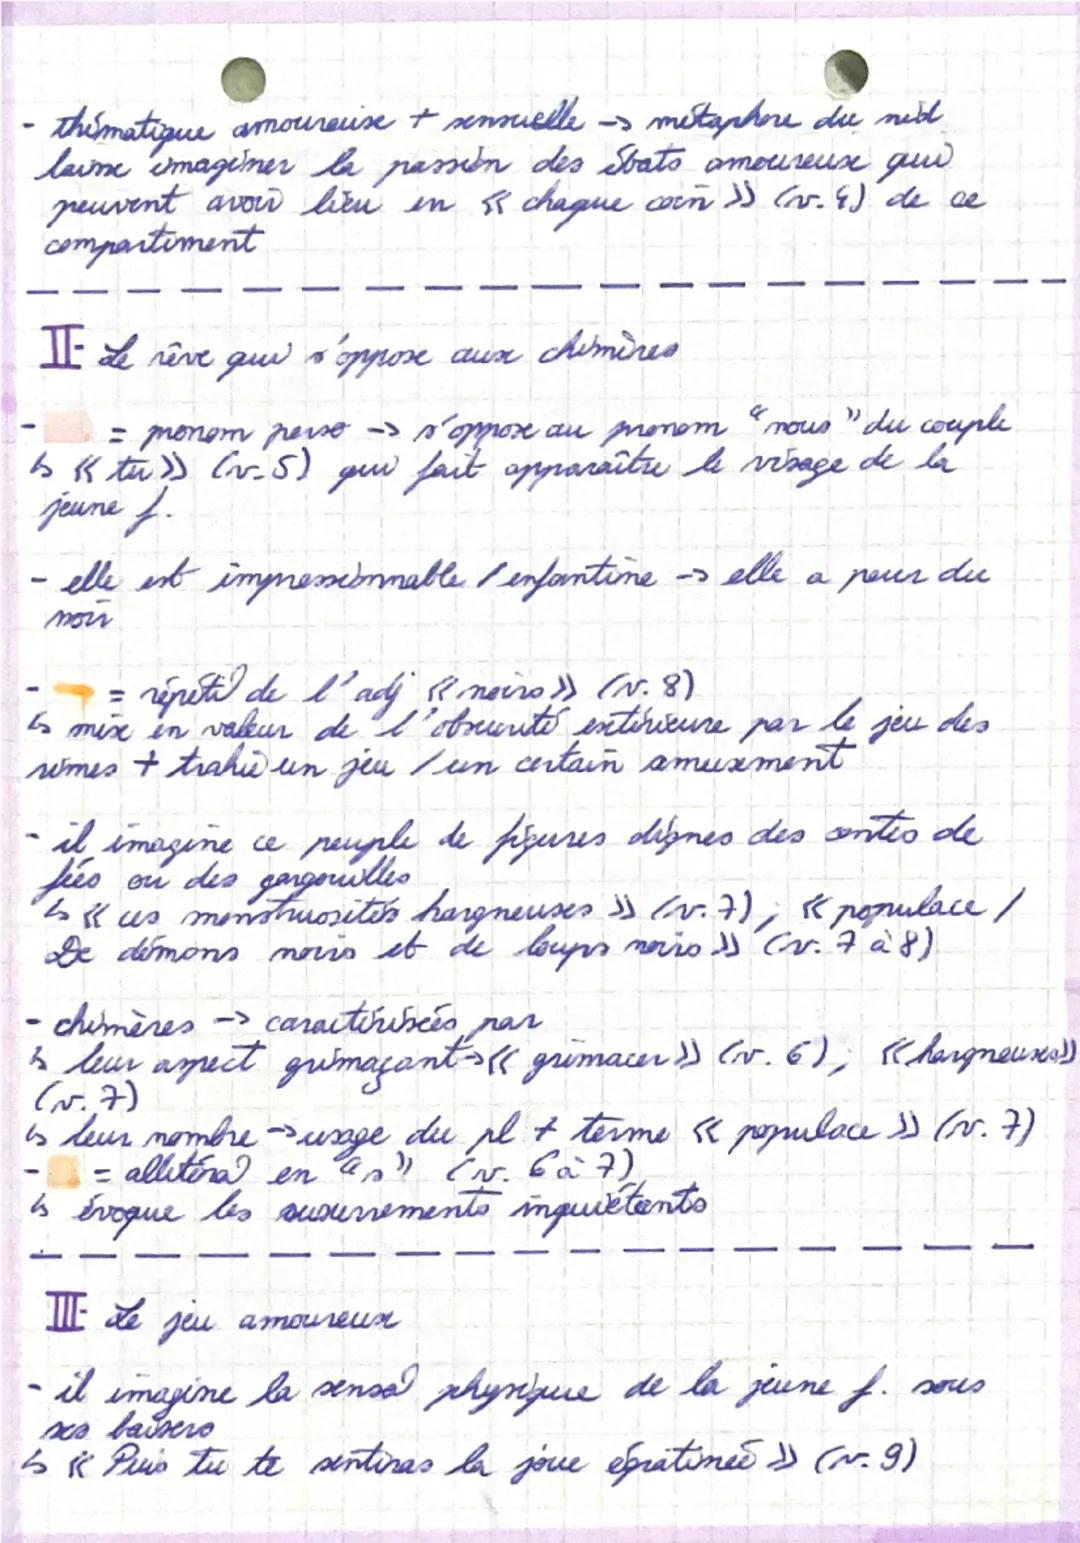 - thématique amoureuse + sensuelle -> métaphore du nid
laisse imaginer la passion des ébats amoureux qui
peuvent avoir lieu en « chaque coin » (v. 4) de ce
compartiment
II- Le rêve qui s'oppose aux chimères
- = pronom perso -> s'oppose au pronom "nous" du couple
↳ « tu » (v. 5) qui fait apparaître le visage de la
jeune f.
- elle est impressionnable / enfantine -> elle a peur du
noir
- = répét° de l'adj « noirs » (v. 8)
↳ mise en valeur de l'obscurité extérieure par le jeu des
rimes + trahit un jeu / un certain amusement
- il imagine ce peuple de figures dignes des contes de
fées ou des gargouilles
↳ « ces monstruosités hargneuses » (v. 7) ; « populace /
De démons noirs et de loups noirs » (v. 7 à 8)
- chimères -> caractérisées par
↳ leur aspect grimaçant -> « grimacer » (v. 6) ; « hargneuses »
(v. 7)
↳ leur nombre -> usage du pl + terme « populace » (v. 7)
- = allitéra° en "s" (v. 6 à 7)
↳ évoque les susurrements inquiétants
III- Le jeu amoureux
- il imagine la sensa° physique de la jeune f. sous
ses baisers
↳ « Puis tu te sentiras la joue égratignée » (v. 9)